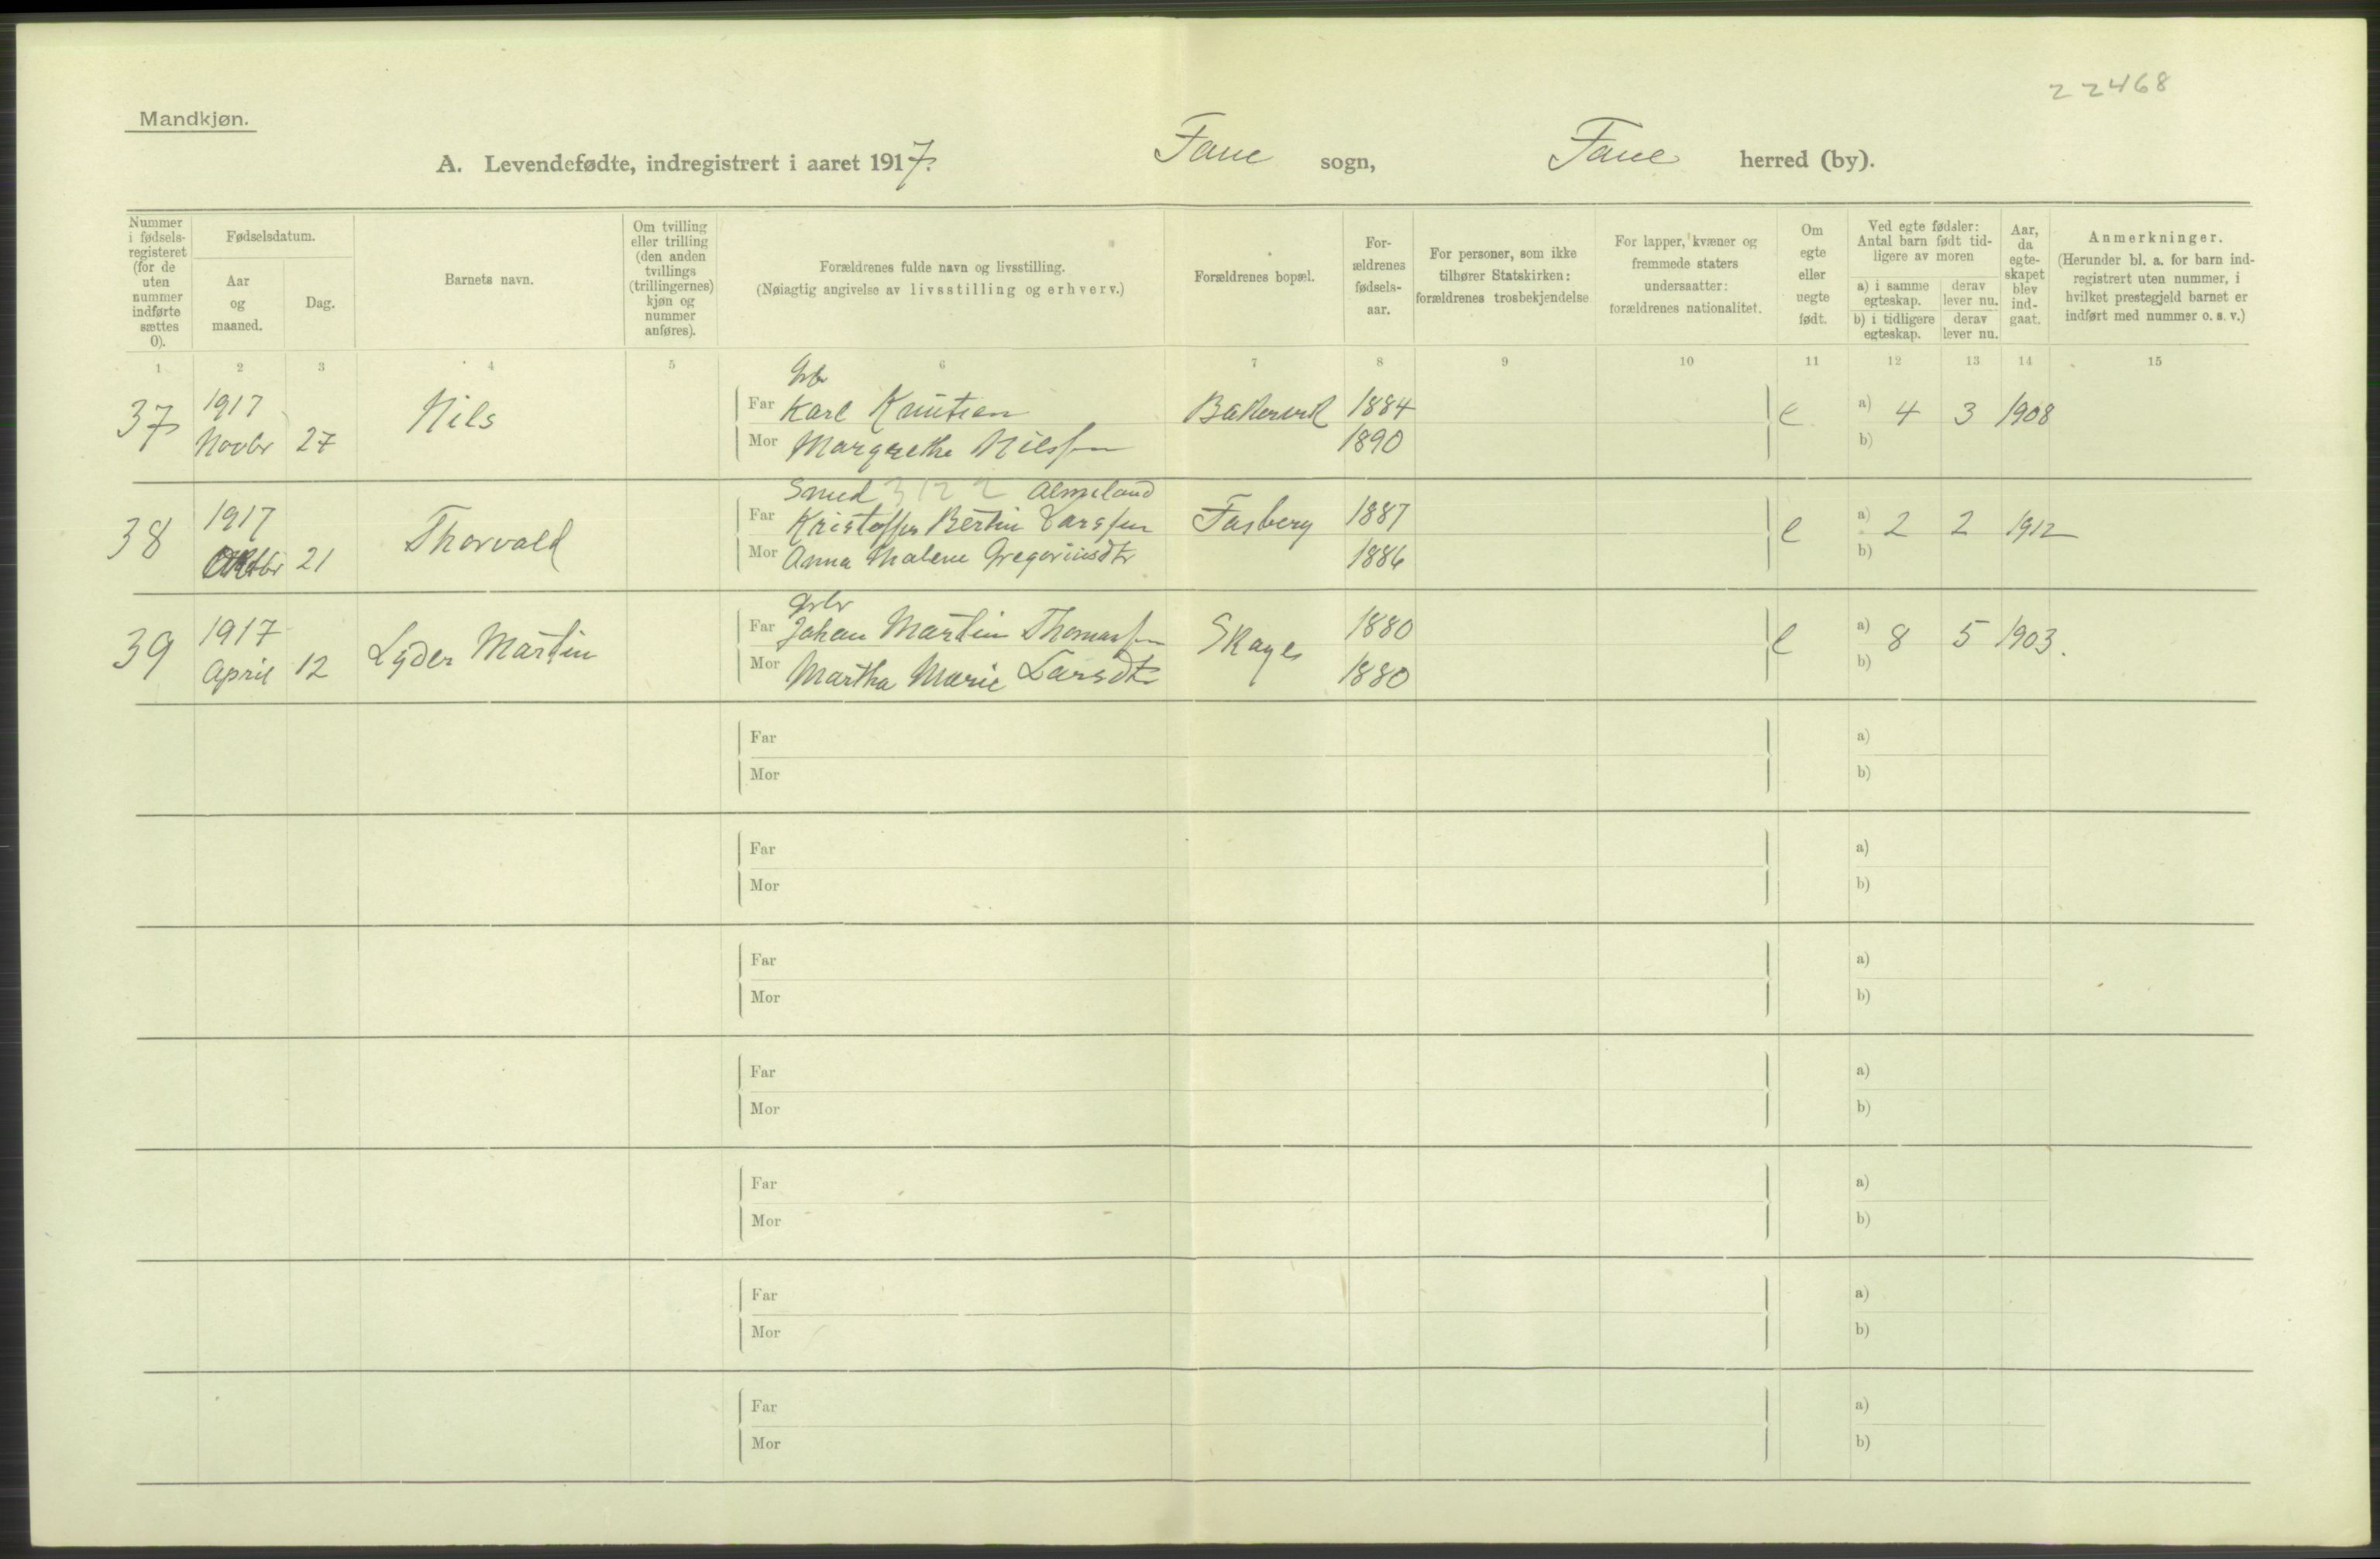 22468
Mandkjøn.
A. Levendefødte, indregistrert i aaret 1917. Fane sogn, Fane herred (by).
Nummer i fødsels-registeret (for de uten nummer indførte sættes 0).
Fødselsdatum.
Aar og maaned.
Dag.
Barnets navn.
Om tvilling eller trilling (den anden tvillings (trillingernes) kjøn og nummer anføres).
Forældrenes fulde navn og livsstilling.
(Nøiagtig angivelse av livsstilling og erhverv.)
Forældrenes bopæl.
For-ældrenes fødsels-aar.
For personer, som ikke tilhører Statskirken: forældrenes trosbekjendelse
For lapper, kvæner og fremmede staters undersaatter: forældrenes nationalitet.
Om egte eller uegte født.
Ved egte fødsler: Antal barn født tid-ligere av moren
a) i samme egteskap.
derav lever nu.
b) i tidligere egteskap.
derav lever nu.
Aar, da egte-skapet blev ind-gaat.
Anmerkninger.
(Herunder bl. a. for barn ind-registrert uten nummer, i hvilket prestegjeld barnet er indført med nummer o. s. v.)
1 2 3 4 5 6 7 8 9 10 11 12 13 14 15
Gbr
37 1917 Nils Far Karl Knutsen 1884 e a) 4 3 1908
Novbr 27 Mor Margrethe Nilssen 1890 b)
Smed 3122 Almeland
38 1917 Thorvald Far Kristoffer Bertin Larssen Fasberg 1887 e a) 2 2 1912
Oktbr 21 Mor Anna Malene Gregoriusdtr 1886 b)
Gbr
39 1917 Lyder Martin Far Johan Martin Thomassen Skage 1880 e a) 8 5 1903.
April 12 Mor Martha Marie Larsdtr 1880 b)
Far a)
Mor b)
Far a)
Mor b)
Far a)
Mor b)
Far a)
Mor b)
Far a)
Mor b)
Far a)
Mor b)
Far a)
Mor b)